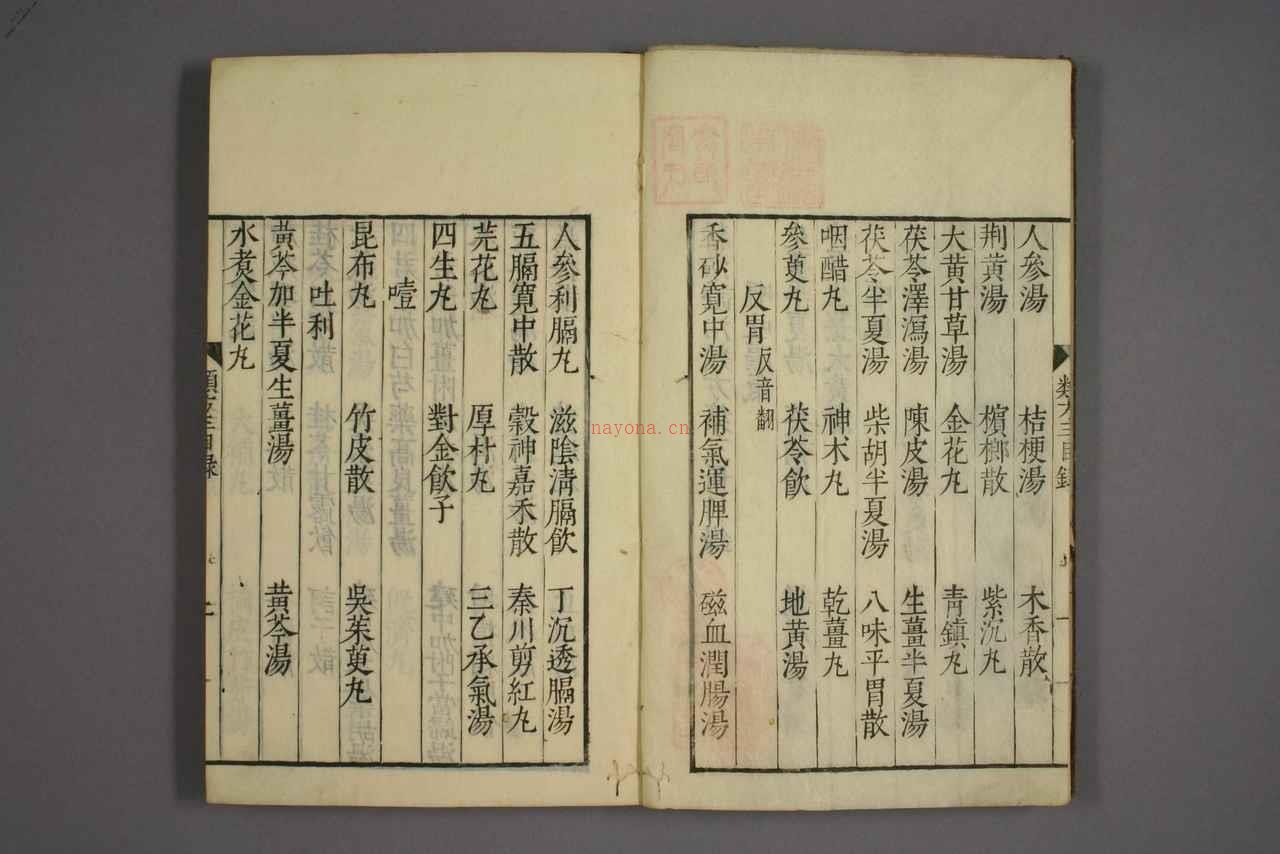 人參湯 桔梗湯 木香散
荆黄湯 檳榔散 紫沉丸
大黄甘草湯 金花丸 青鎮丸
茯苓澤瀉湯 陳皮湯 生薑半夏湯
茯苓半夏湯 柴胡半夏湯 八味平胃散
咽醋丸 神术丸 乾薑丸
參萸丸 茯苓飲 地黄湯
反胃 反音翻
香砂寛中湯 補氣運脾湯 滋血潤腸湯
人參利膈丸 滋陰清膈飲 丁沉透膈湯
五膈寛中散 穀神嘉禾散 秦川剪紅丸
芫花丸 厚朴丸 三乙承氣湯
四生丸 對金飲子
噎
昆布丸 竹皮散 吳茱萸丸
吐利
黄芩加半夏生薑湯 黄芩湯
水煑金花丸
類方三目録
nayona.cn